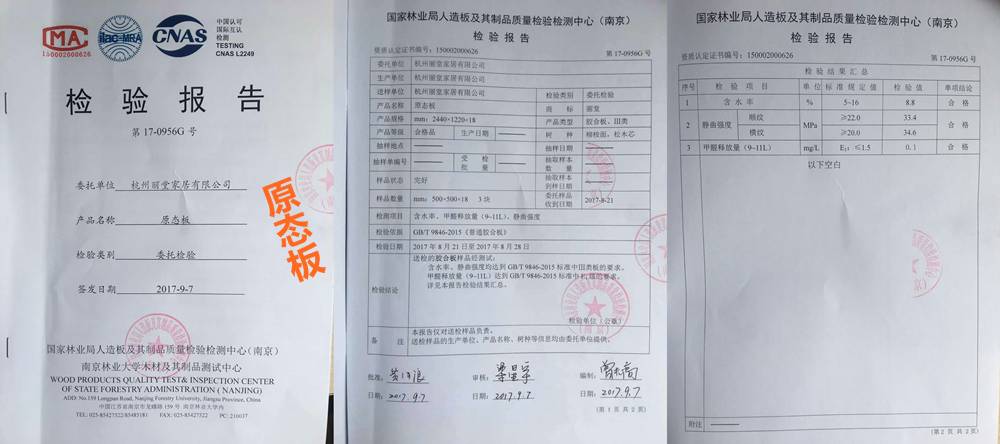 MA
150002000626
ilac-MRA
CNAS
中国认可
国际互认
检测
TESTING
CNAS L2249
检验报告
第 17-0956G 号
委托单位 杭州丽堂家居有限公司
产品名称 原态板
检验类别 委托检验
签发日期 2017-9-7
国家林业局人造板及其制品质量检验检测中心（南京）
南京林业大学木材及其制品测试中心
WOOD PRODUCTS QUALITY TEST& INSPECTION CENTER
OF STATE FORESTRY ADMINISTRATION ( NANJING)
ADD: No.159 Longpan Road, Nanjing Forestry University, Jiangsu Province, China
中国江苏省南京市龙蟠路 159 号 南京林业大学内
TEL: 025-85427522/85485181 FAX: 025-85427522 PC: 210037
原态板
国家林业局人造板及其制品质量检验检测中心（南京）
检验报告
资质认定证书编号：150002000626 第 17-0956G 号
委托单位 杭州丽堂家居有限公司
生产单位 杭州丽堂家居有限公司
送样单位 杭州丽堂家居有限公司 检验类别 委托检验
产品名称 原态板 商标 丽堂
产品规格 mm：2440×1220×18 产品类型 胶合板、Ⅲ类
产品等级 合格品 生产日期 —— 树种 柳桉面，松木芯
抽样地点 —— 抽样日期 ——
抽样单编号 —— 受检批量 —— 抽取样本数量 ——
样品状态 完好 抽取样本到样日期 ——
样品数量 mm：500×500×18 3 块 委托样品收到日期 2017-8-21
检测项目 含水率、甲醛释放量（9~11L）、静曲强度
检验依据 GB/T 9846-2015《普通胶合板》
检验日期 2017 年 8 月 21 日至 2017 年 8 月 28 日
检验结论
送检的胶合板样品经测试：
含水率、静曲强度均达到 GB/T 9846-2015 标准中Ⅲ类板的要求。
甲醛释放量（9~11L）达到 GB/T 9846-2015 标准中E₁级的要求。
详见本报告检验结果汇总。
检验单位（公章）
备注
本报告仅对送检样品负责。
送检样品的生产单位、产品名称、树种等信息均由委托单位提供。
批准： 审核： 编制：
日期：2017.9.7 日期：2017.9.7 日期：2017.9.7
（第 1 页 共 2 页）
国家林业局人造板及其制品质量检验检测中心（南京）
检验报告
资质认定证书编号：150002000626 第 17-0956G 号
检验结果汇总
序号 检验项目 单位 标准规定值 检验值 单项结论
1 含水率 % 5~16 8.8 合格
2 静曲强度 顺纹 MPa ≥22.0 33.4 合格
横纹 ≥20.0 34.6
3 甲醛释放量（9~11L） mg/L E₁：≤1.5 0.1 合格
以下空白
附注 ——
（第 2 页 共 2 页）